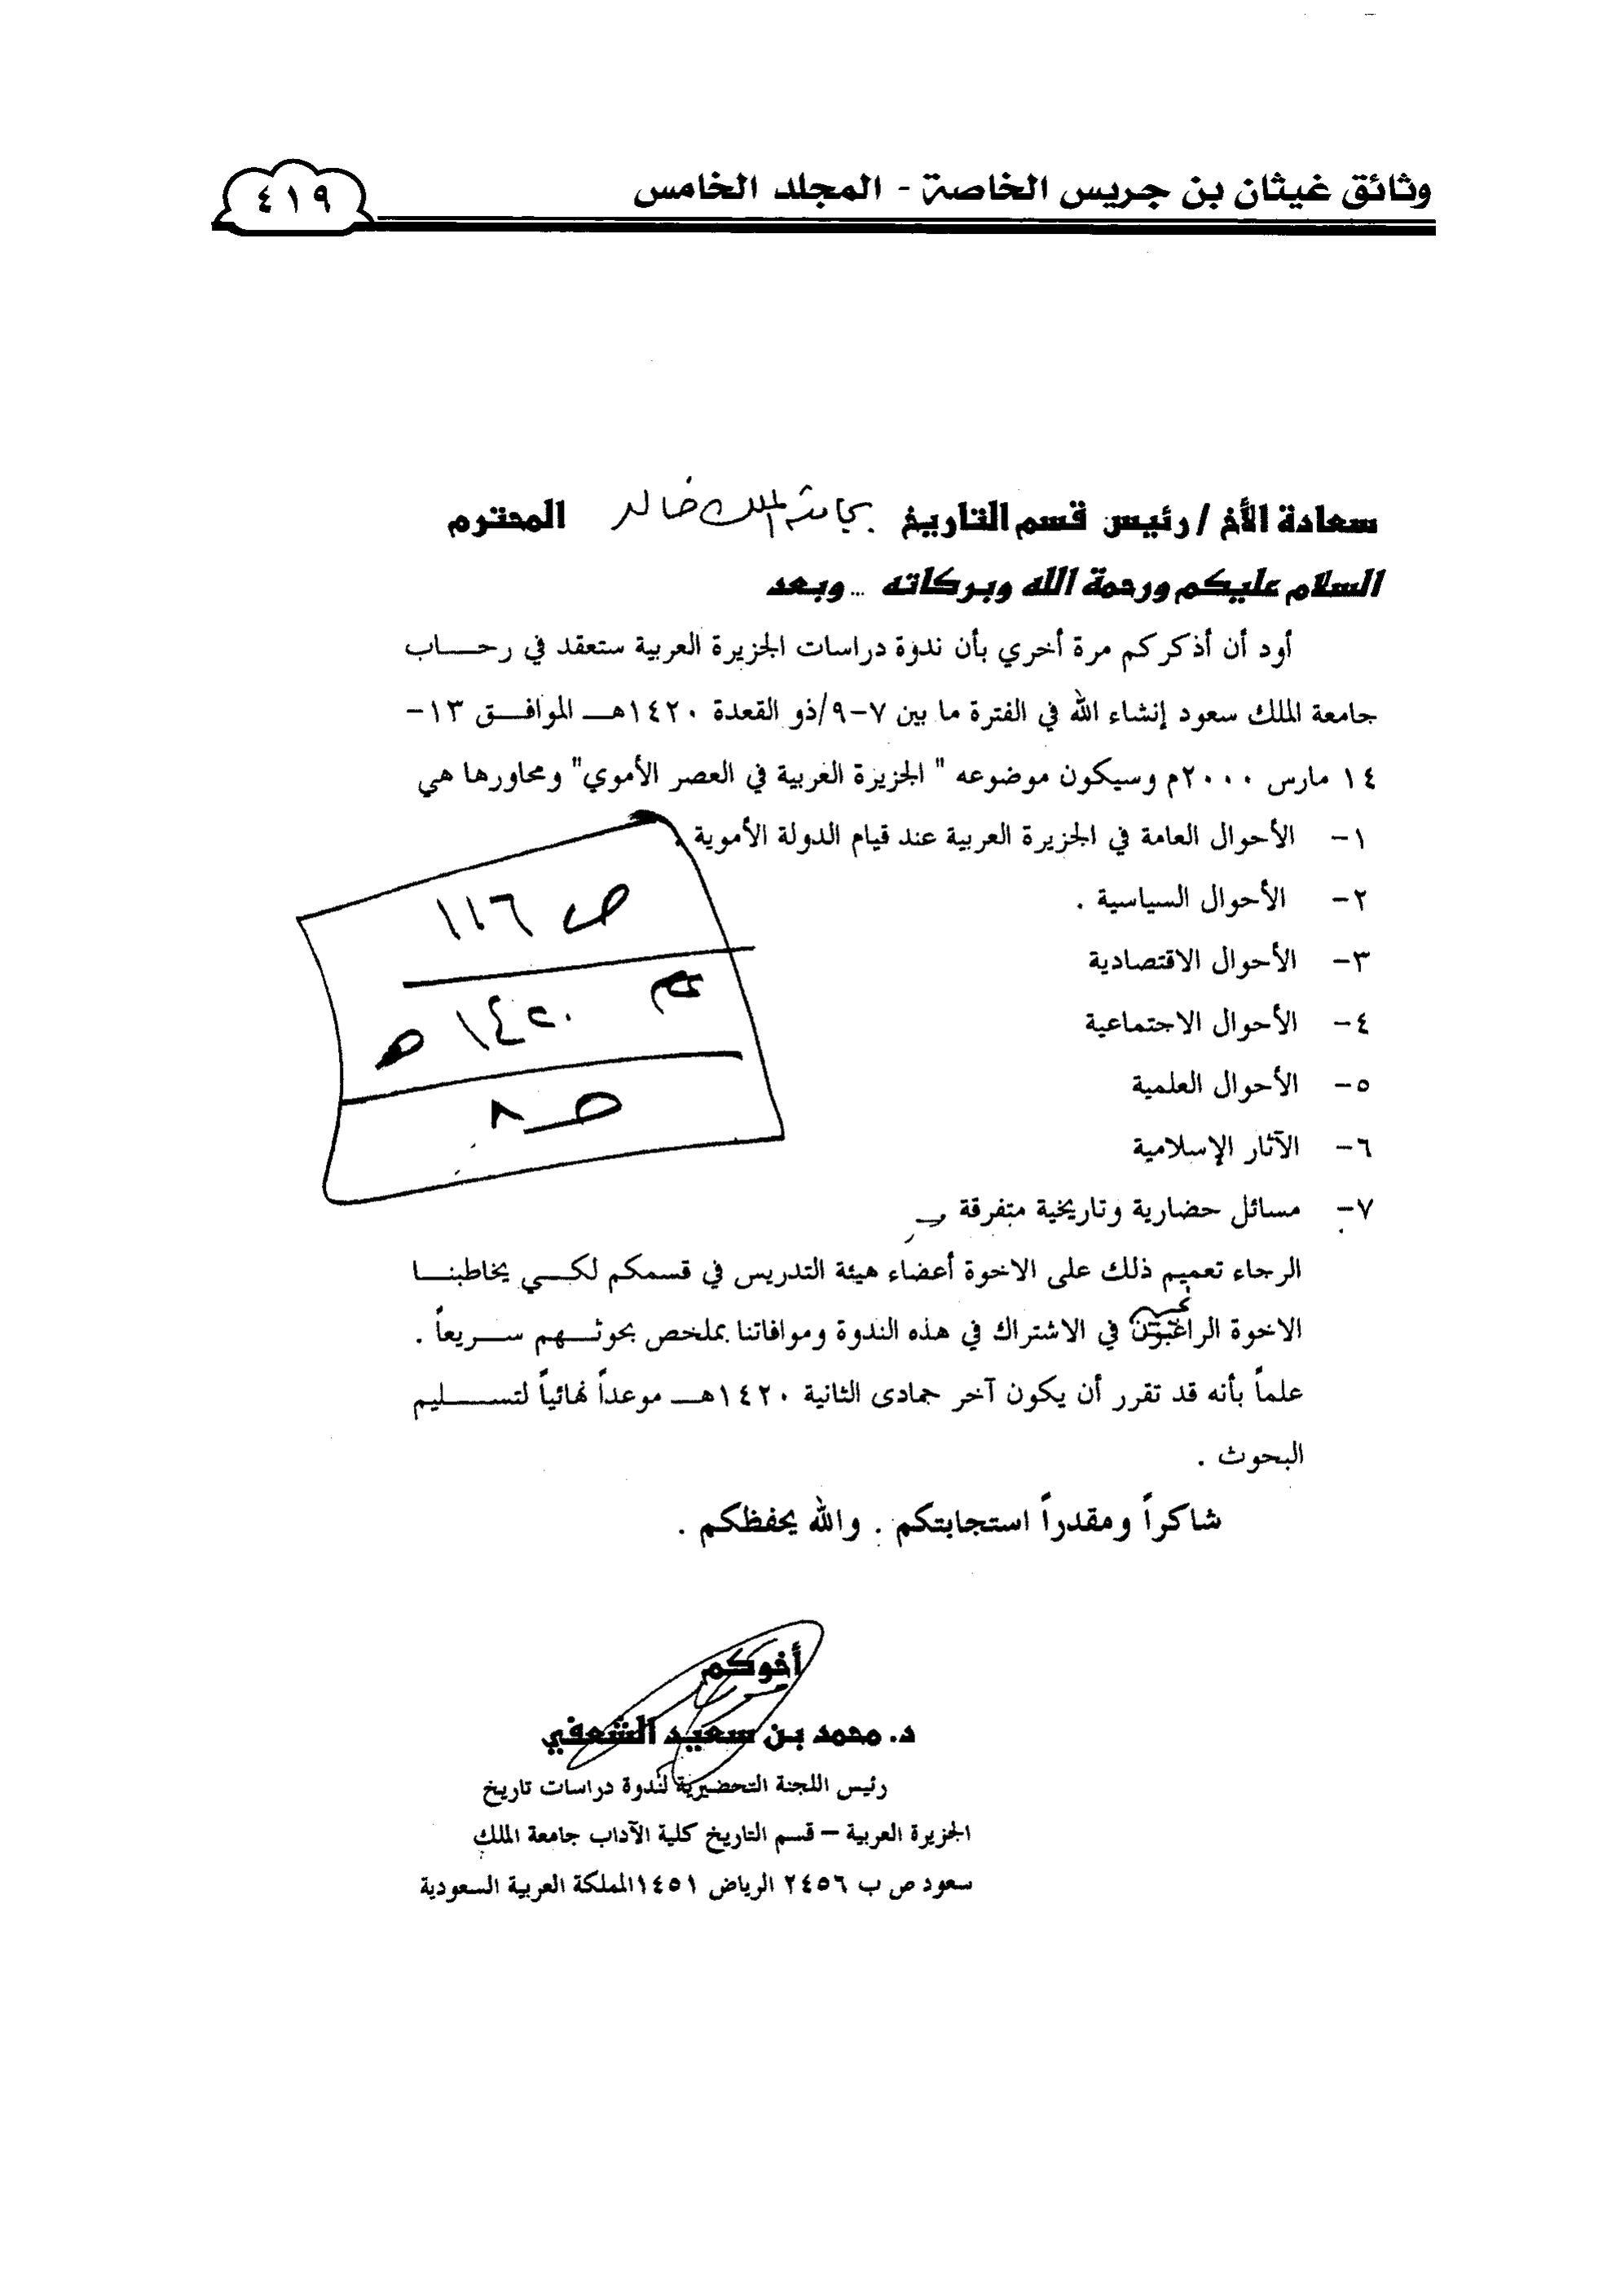 وثائق غيثان بن جريس الخاصة - المجلد الخامس
٤١٩
سعادة الأخ / رئيس قسم التاريخ بجامعة الملك خالد المحترم
السلام عليكم ورحمة الله وبركاته ... وبعد
أود أن أذكركم مرة أخري بأن ندوة دراسات الجزيرة العربية ستعقد في رحاب
جامعة الملك سعود إنشاء الله في الفترة ما بين ٧-٩/ذو القعدة ١٤٢٠هـ الموافق ١٣-
١٤ مارس ٢٠٠٠م وسيكون موضوعه " الجزيرة العربية في العصر الأموي" ومحاورها هي
١- الأحوال العامة في الجزيرة العربية عند قيام الدولة الأموية .
٢- الأحوال السياسية .
٣- الأحوال الاقتصادية
٤- الأحوال الاجتماعية
٥- الأحوال العلمية
٦- الآثار الإسلامية
٧- مسائل حضارية وتاريخية متفرقة
ص ١١٦
عم ١٤٢٠ هـ
ص ٨
الرجاء تعميم ذلك على الاخوة أعضاء هيئة التدريس في قسمكم لكي يخاطبنا
الاخوة الراغبون في الاشتراك في هذه الندوة وموافاتنا بملخص بحوثهم سريعاً .
علماً بأنه قد تقرر أن يكون آخر جمادى الثانية ١٤٢٠هـ موعداً نهائياً لتسليم
البحوث .
شاكراً ومقدراً استجابتكم . والله يحفظكم .
أخوكم
د. محمد بن سعيد الشعفي
رئيس اللجنة التحضيرية لندوة دراسات تاريخ
الجزيرة العربية – قسم التاريخ كلية الآداب جامعة الملك
سعود ص ب ٢٤٥٦ الرياض ١٤٥١المملكة العربية السعودية